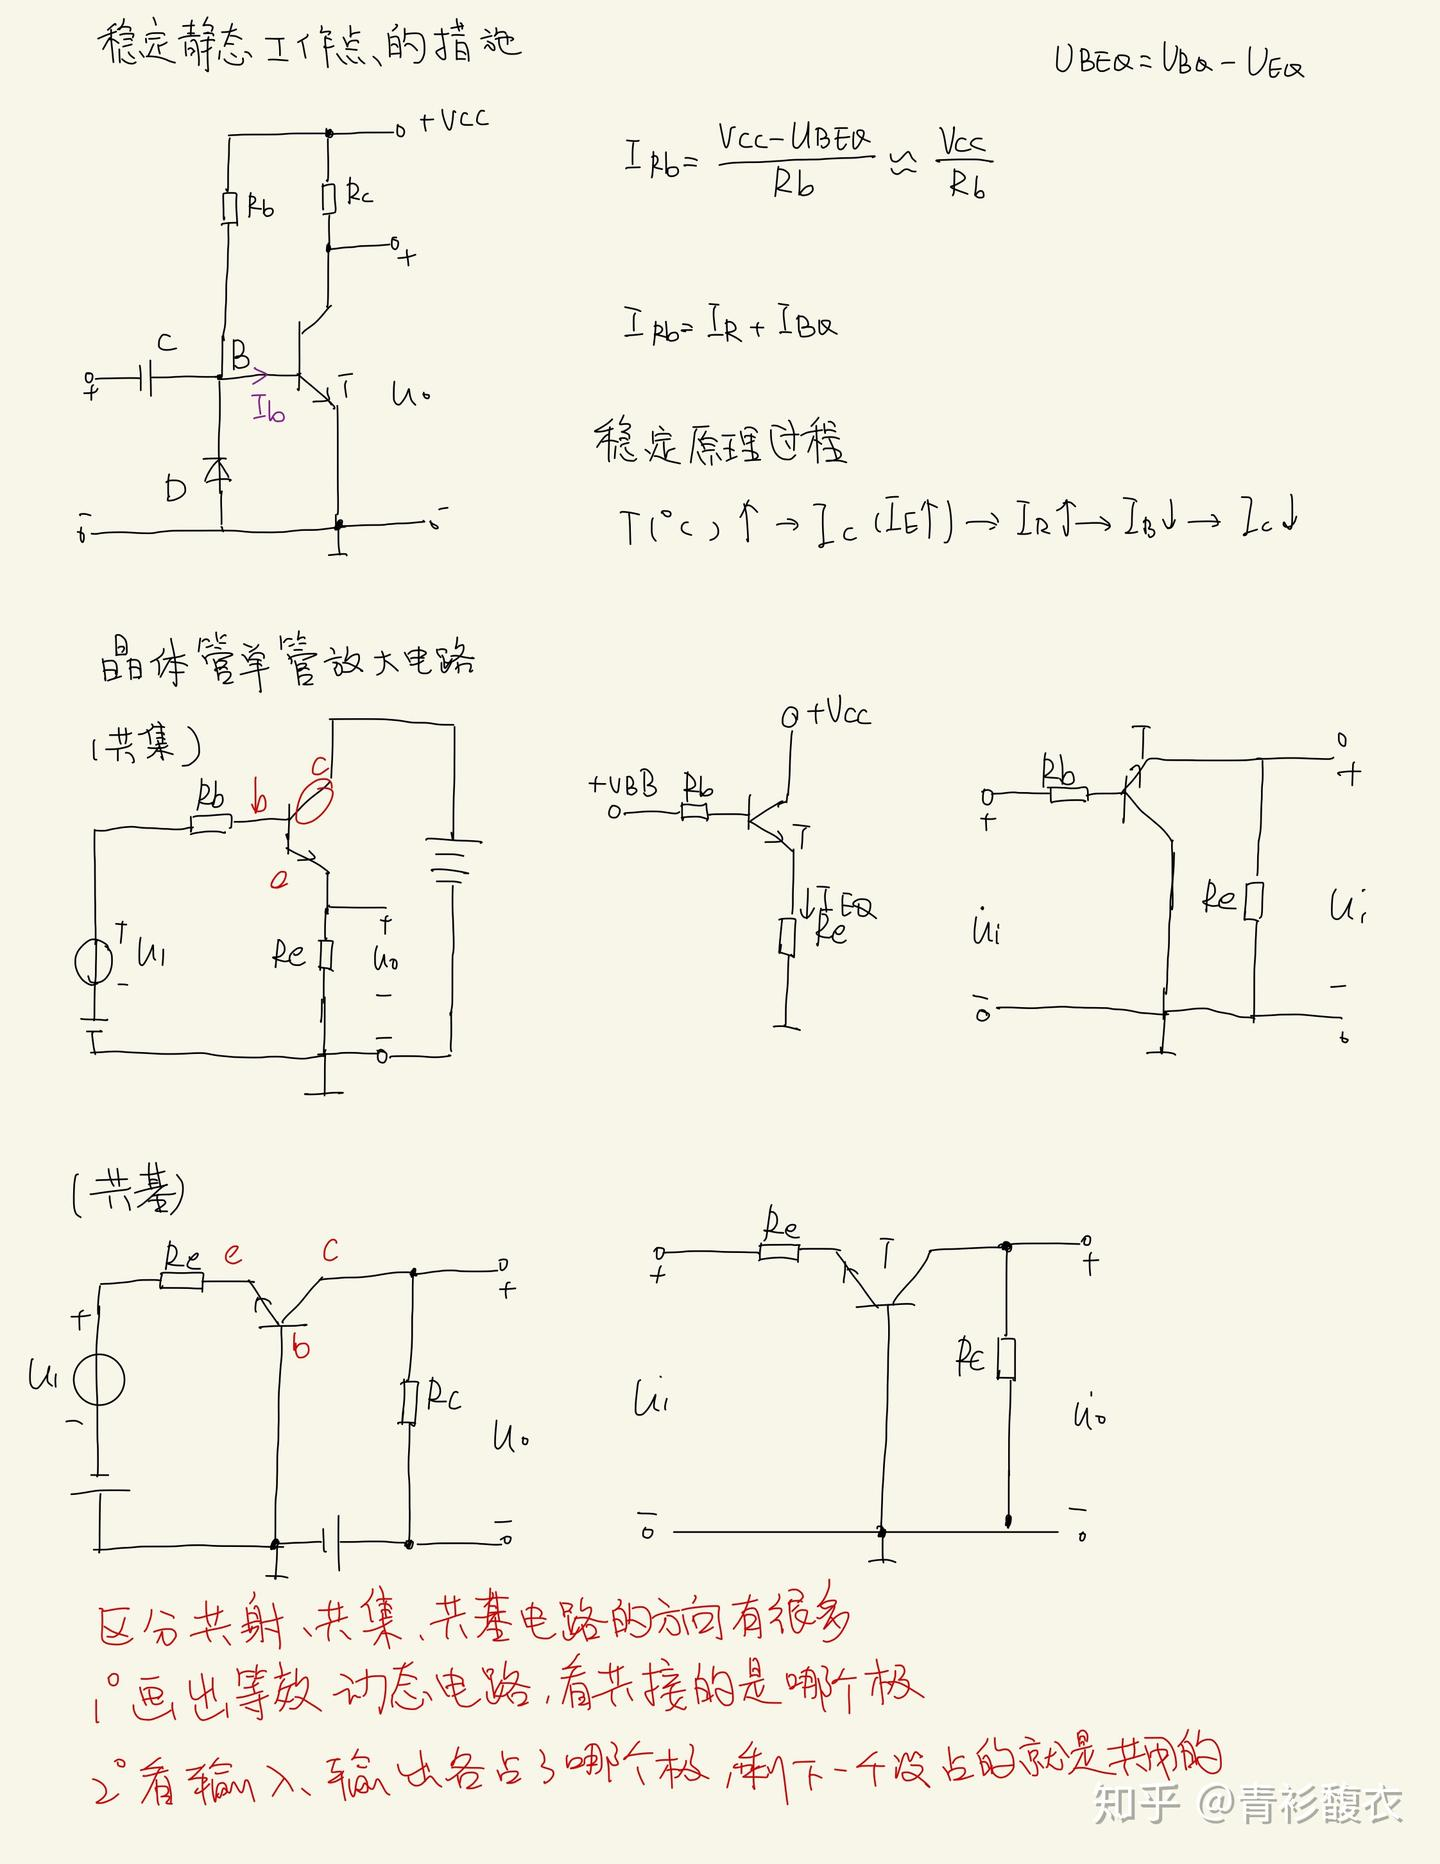 稳定静态工作点的措施
UBEQ=UBQ-UEQ
+VCC
Rb
Rc
+
C
B
Ib
+
T
uo
D
-
-
IRb=(VCC-UBEQ)/Rb≈VCC/Rb
IRb=IR+IBQ
稳定原理过程
T(°C)↑→IC(IE↑)→IR↑→IB↓→IC↓
晶体管单管放大电路
(共集)
Rb
b
c
e
+
uI
-
Re
+
uo
-
-
+VCC
+VBB
Rb
T
↓IEQ
Re
T
Rb
+
+
u̇i
Re
Ui
-
-
(共基)
Re
e
c
b
+
uI
-
+
Rc
uo
-
Re
T
+
+
Ui
Rc
u̇o
-
-
区分共射、共集、共基电路的方向有很多
1°画出等效动态电路,看共接的是哪个极
2°看输入、输出各占了哪个极,剩下一个没占的就是共用的
知乎 @青衫馥衣